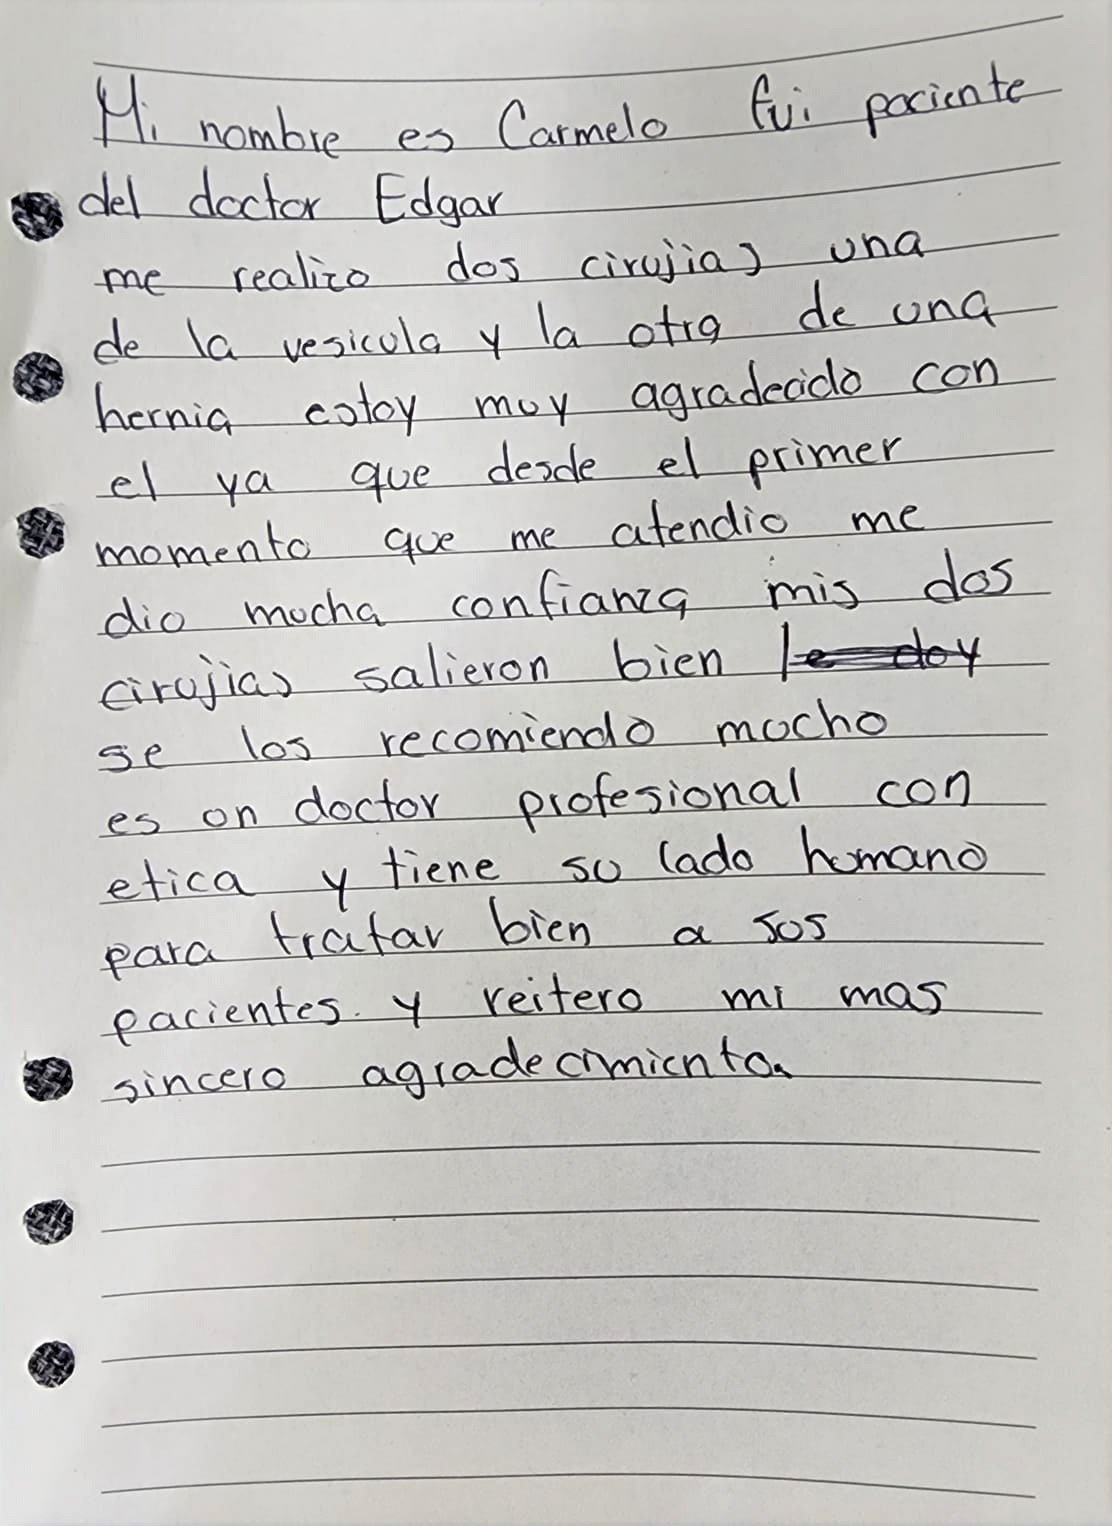 Mi nombre es Carmelo fui paciente
del doctor Edgar
me realizo dos cirujias una
de la vesicula y la otra de una
hernia estoy muy agradecido con
el ya que desde el primer
momento que me atendio me
dio mucha confianza mis dos
cirujias salieron bien le doy
se los recomiendo mucho
es un doctor profesional con
etica y tiene su lado humano
para tratar bien a sus
pacientes. y reitero mi mas
sincero agradecimiento.